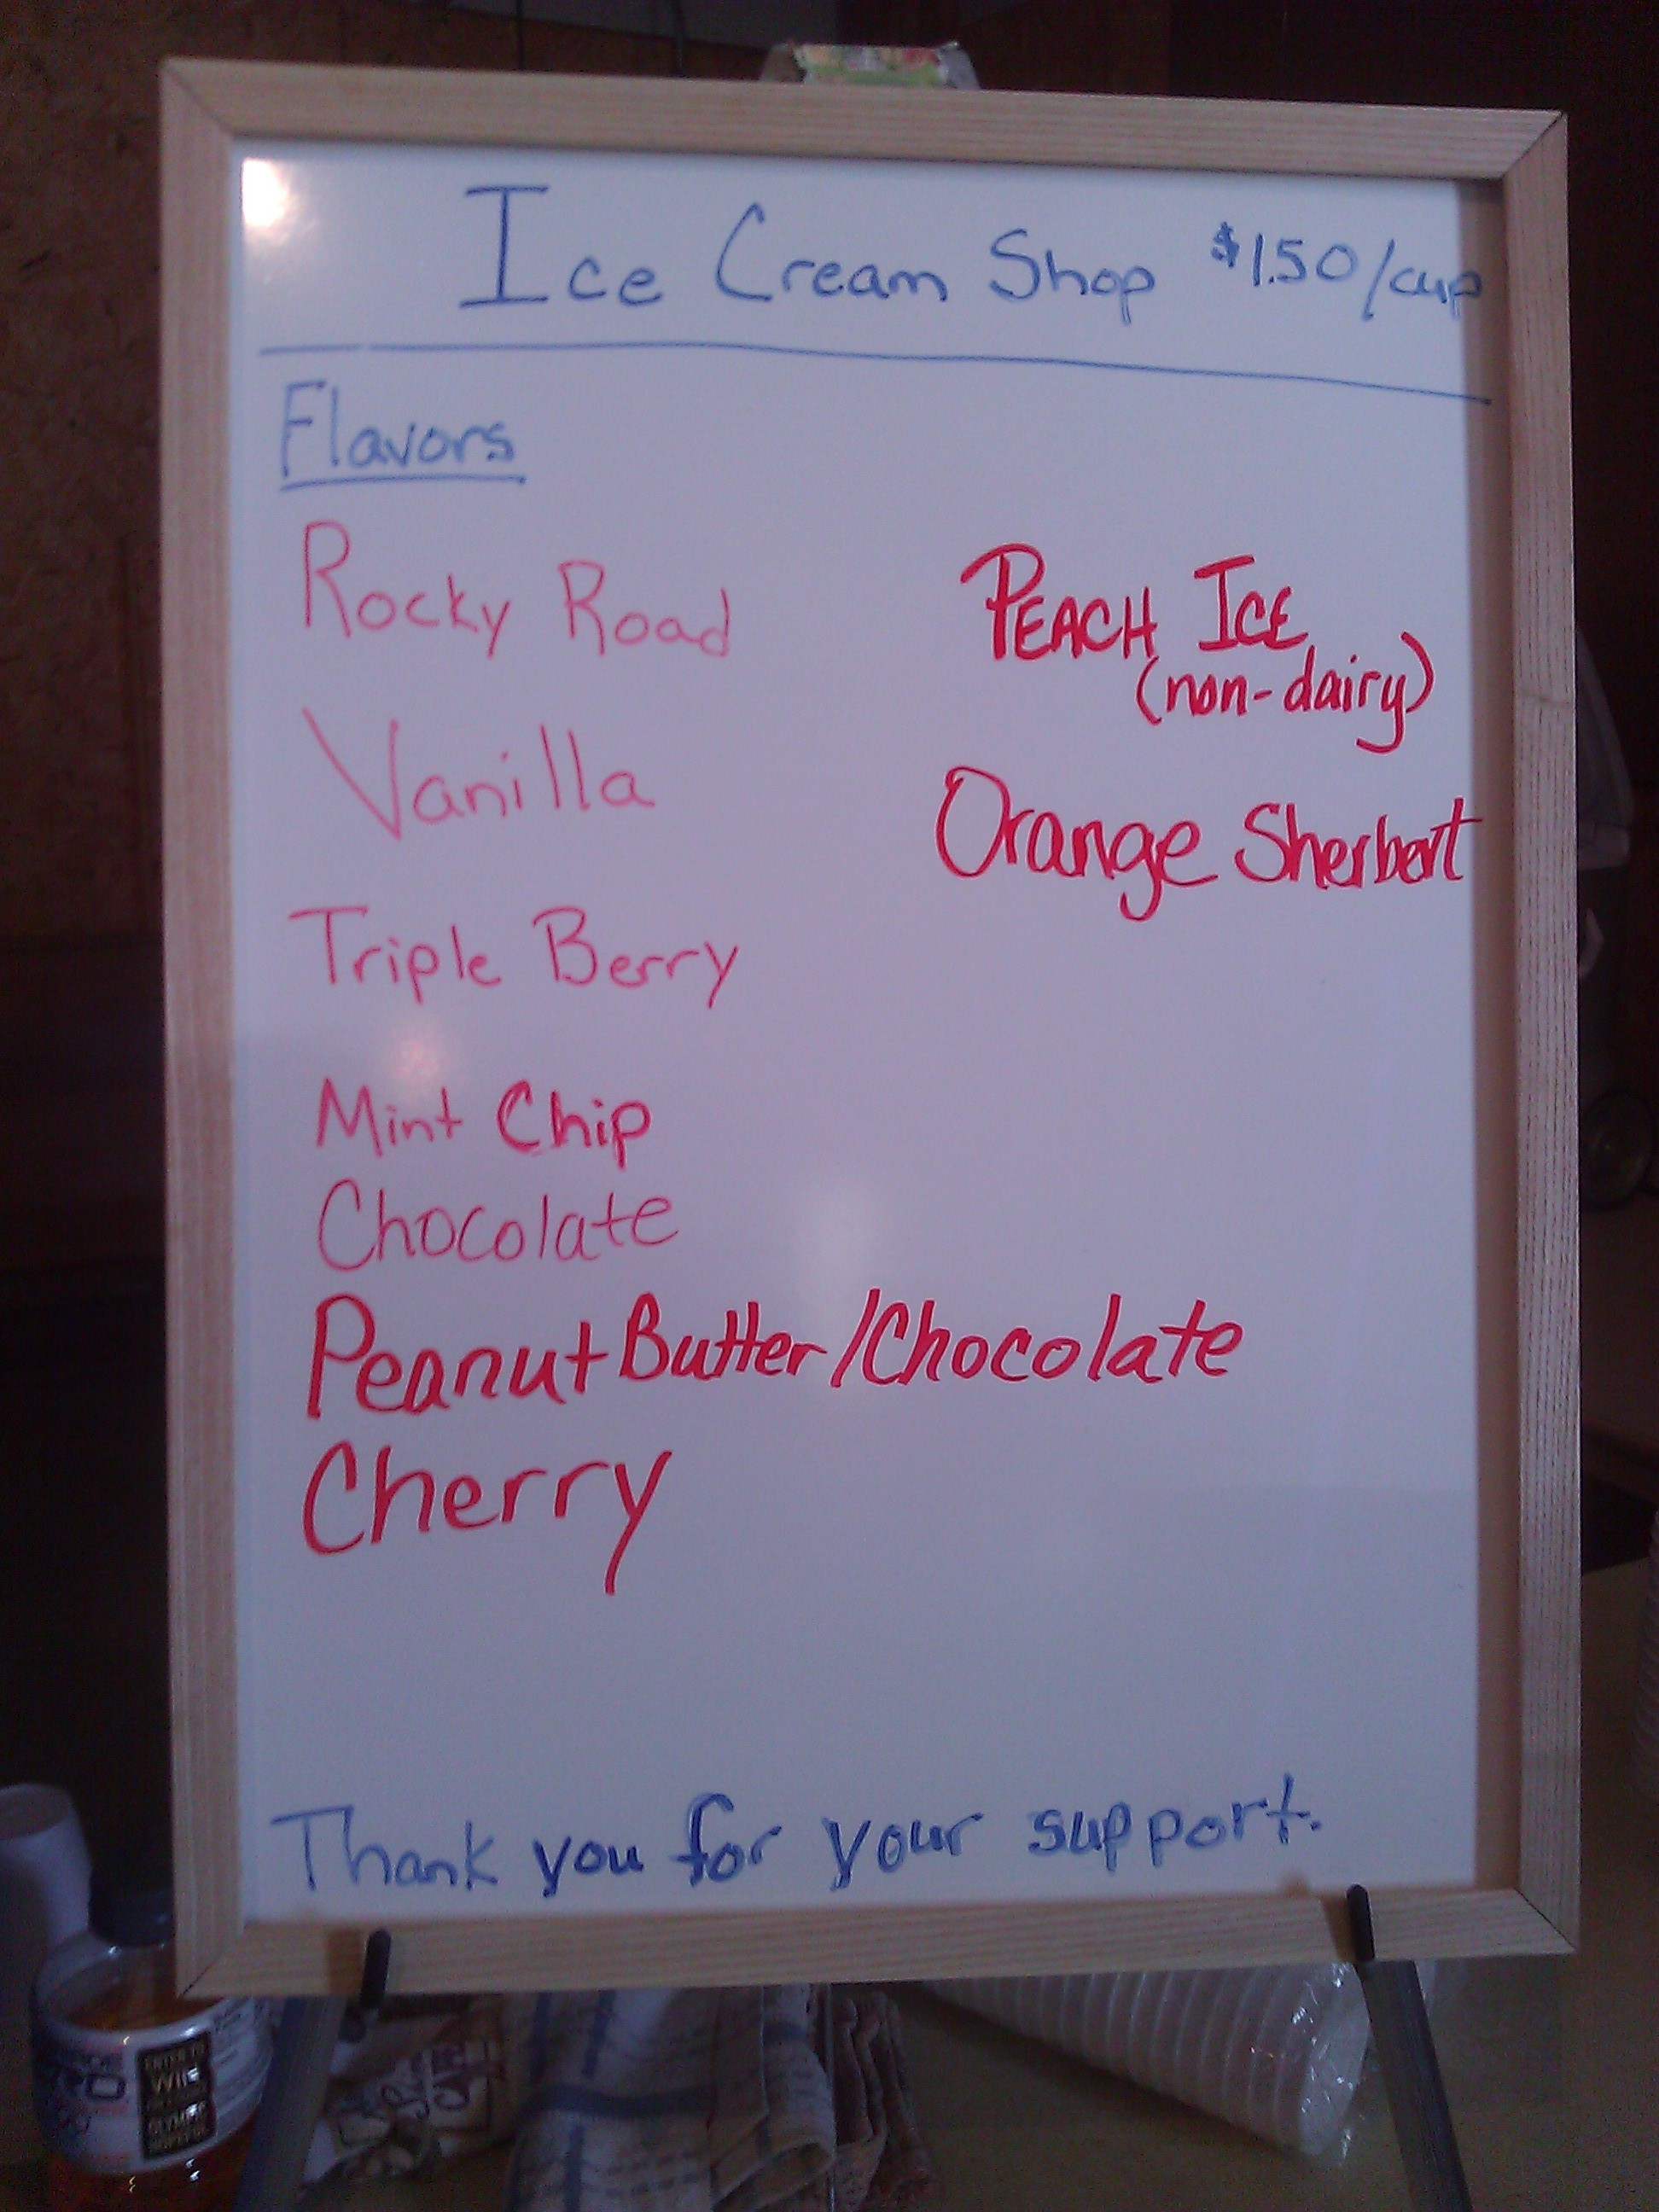 Ice Cream Shop $1.50/cup
Flavors
Rocky Road
Vanilla
Triple Berry
Mint Chip
Chocolate
Peanut Butter/Chocolate
Cherry
PEACH ICE
(non-dairy)
Orange Sherbert
Thank you for your support.
ENTER TO
WIN